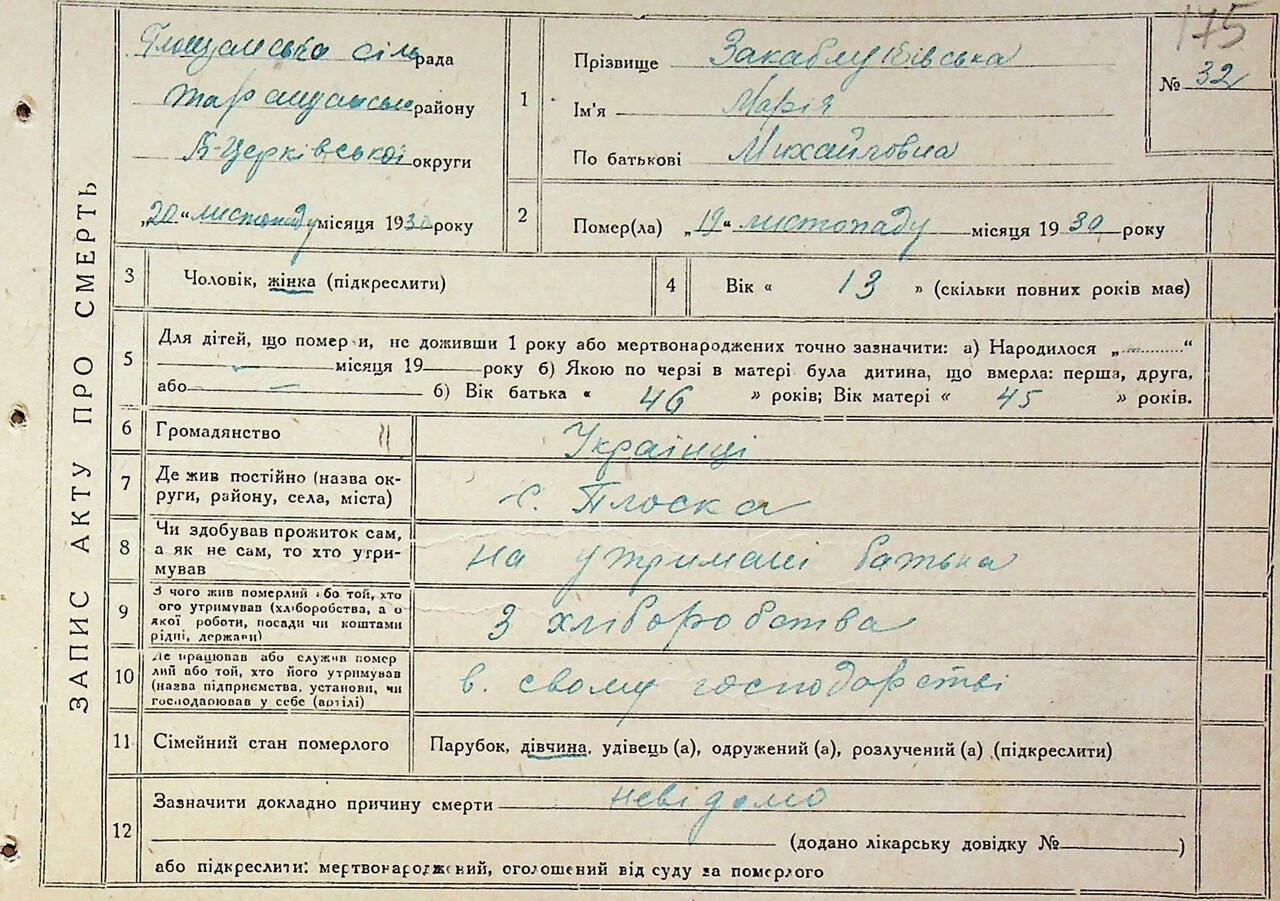 175
ЗАПИС АКТУ ПРО СМЕРТЬ
сільрада
району
Б-Церківської округи
„20“ листопаду місяця 1930 року
1
Прізвище Закаблуківська
Ім'я Марія
По батькові Михайловна
№ 32
2
Помер(ла) „19“ листопаду місяця 1930 року
3 Чоловік, жінка (підкреслити)
4 Вік « 13 » (скільки повних років мав)
5 Для дітей, що померли, не доживши 1 року або мертвонароджених точно зазначити: а) Народилося „ “
місяця 19 року б) Якою по черзі в матері була дитина, що вмерла: перша, друга,
або б) Вік батька « 46 » років; Вік матері « 45 » років.
6 Громадянство Українці
7 Де жив постійно (назва ок-
руги, району, села, міста) с. Плоска
8 Чи здобував прожиток сам,
а як не сам, то хто утри-
мував на утримані батька
9 З чого жив померлий або той, хто
його утримував (хліборобства, а о
якої роботи, посади чи коштами
рідні, держави) З хліборобства
10 Де працював або служив помер
лий або той, хто його утримував
(назва підприємства, установи, чи
господарював у себе (артілі) в. свому господарстві
11 Сімейний стан померлого Парубок, дівчина, удівець (а), одружений (а), розлучений (а) (підкреслити)
12 Зазначити докладно причину смерти невідомо
(додано лікарську довідку № )
або підкреслити: мертвонароджений, оголошений від суду за померлого